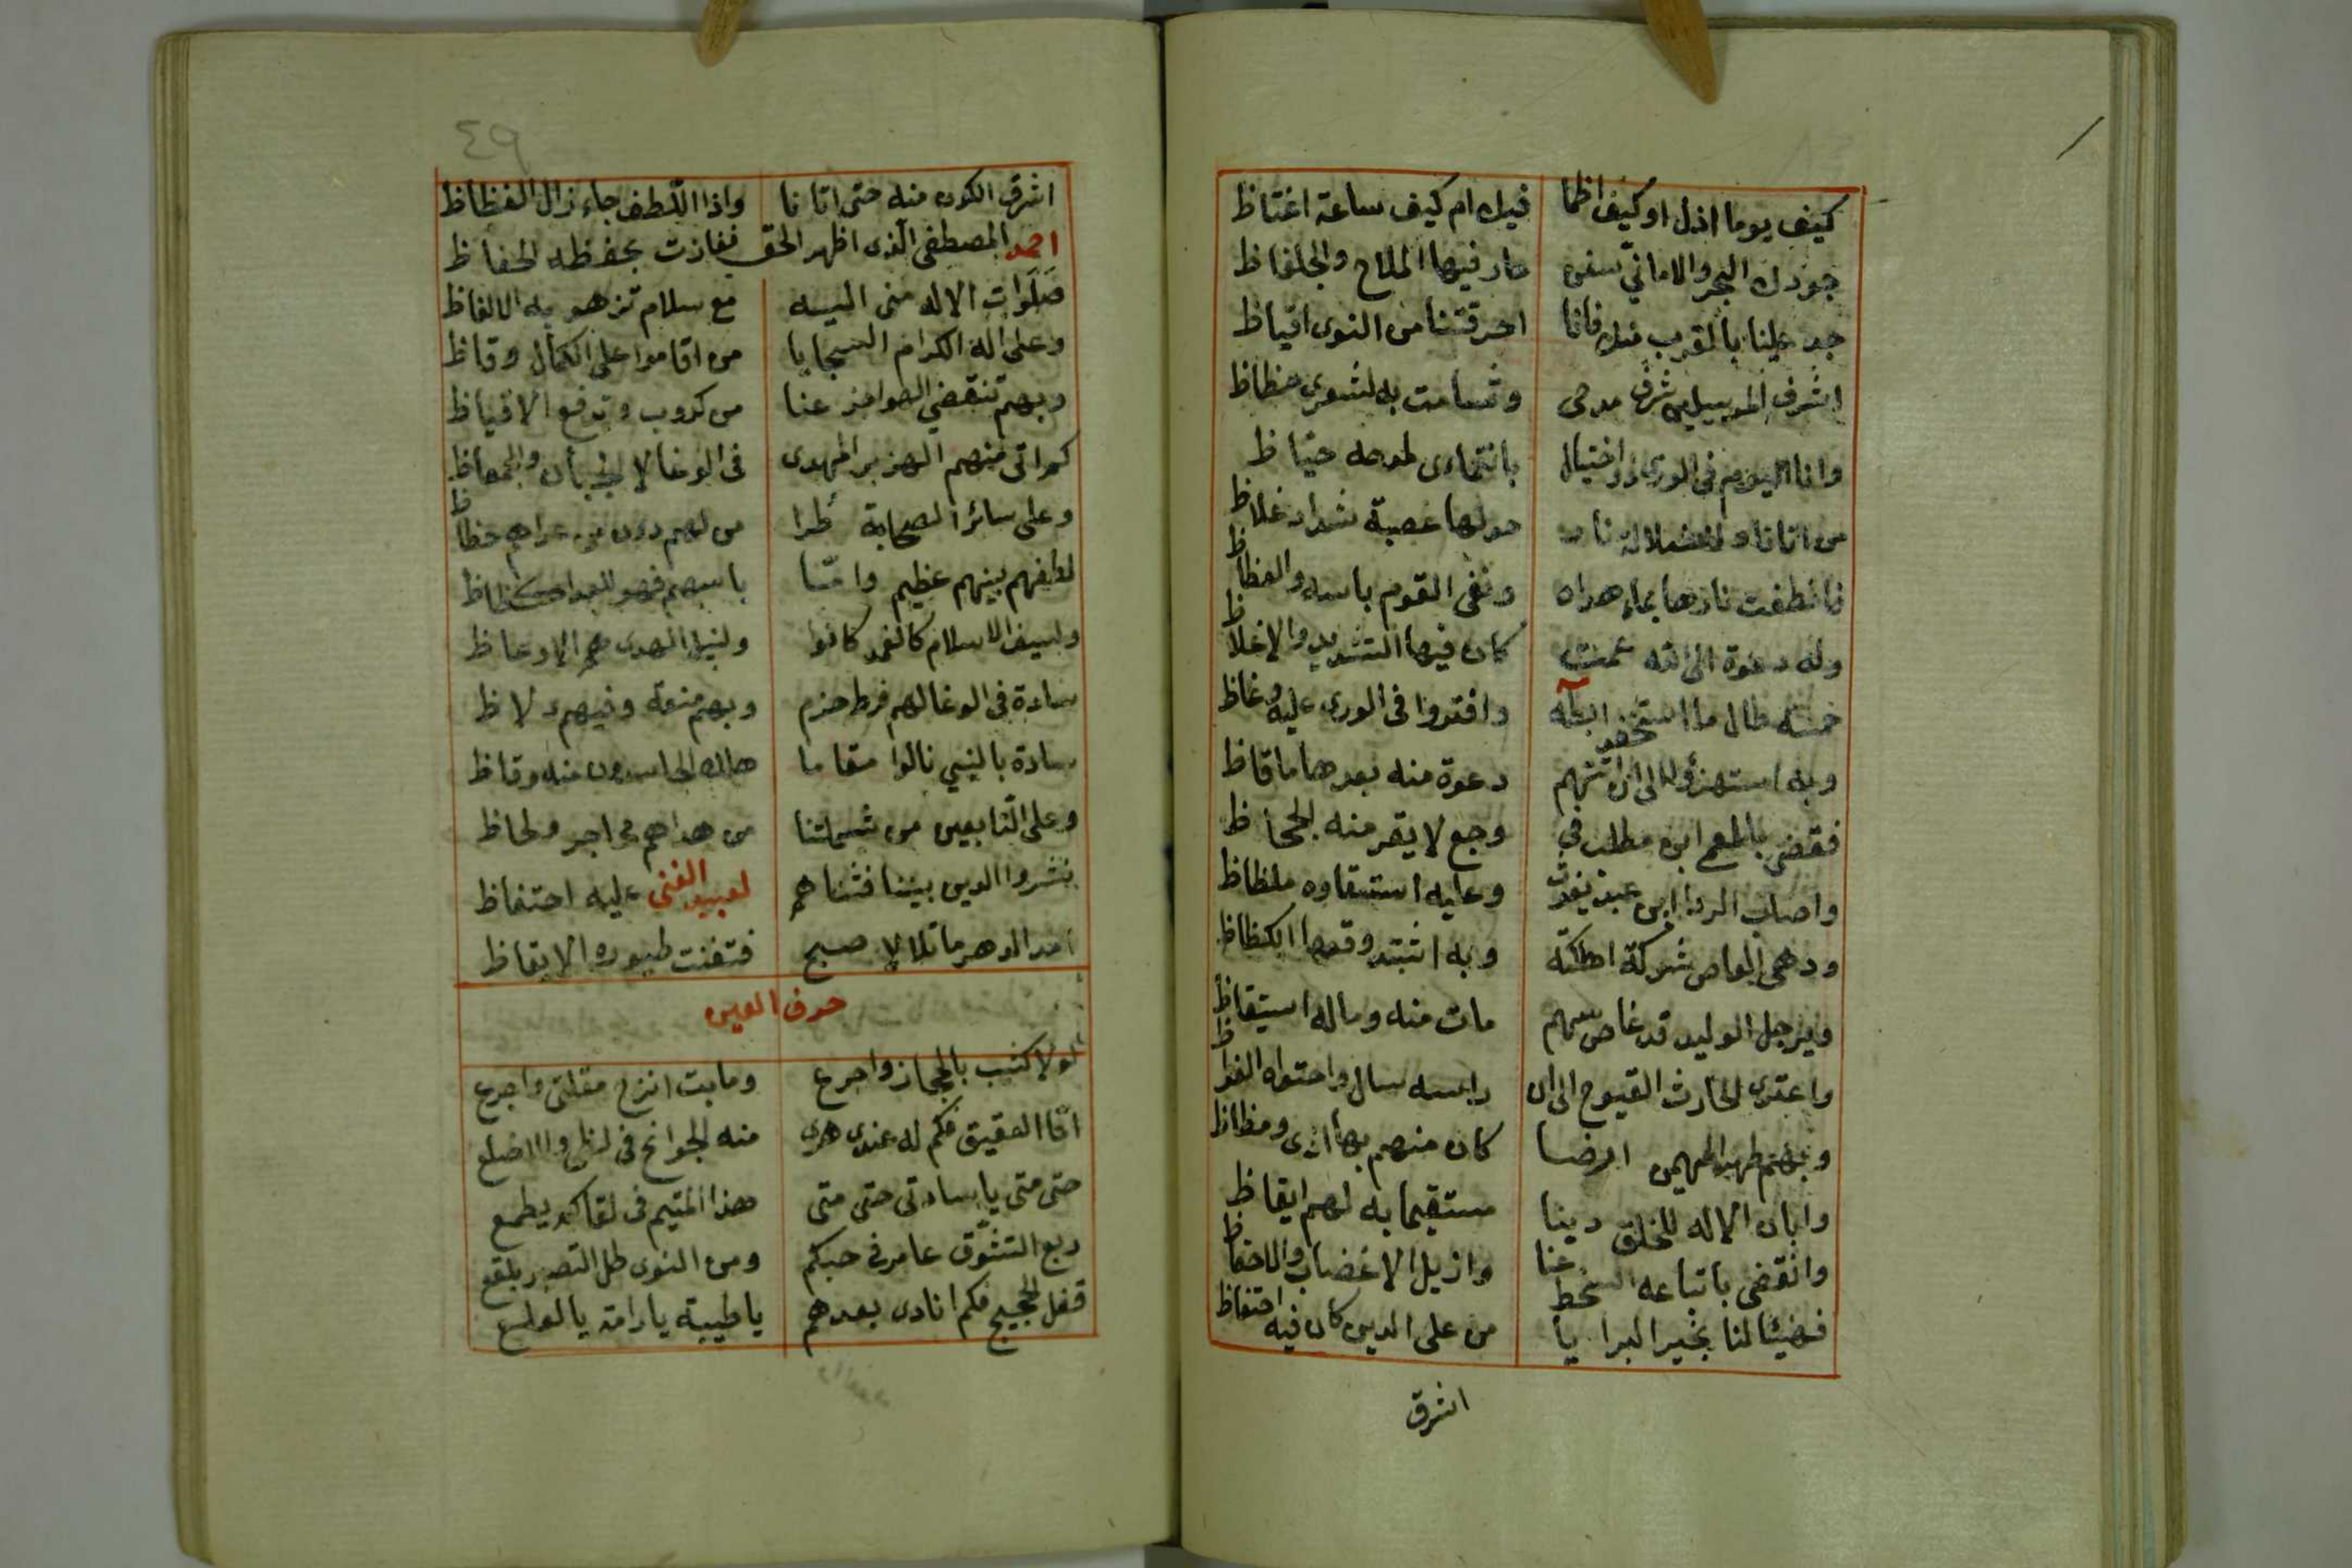 كيف يوما اذل او كيف اظما فيك ام كيف ساعة اغتاظ
جودك البحر والاماني سفن حار فيها الملاح والجلفاظ
جد علينا بالقرب منك فانا احرقتنا من النوى اقياظ
اشرف المرسلين شرف مدحى وتسامت به لشعرى حظاظ
وانا اليوم فى الورى ذو اختيال بانتمادى لمدحه جياظ
من اتانا وللضلالة نار حولها عصبة شداد غلاظ
فانطفت نارها بماء هداه ونفى القوم باسه والعظاظ
وله دعوة الى الله عمت كان فيها التشديد والاغلاظ
خمسة طال ما استخف ابطه وافتروا فى الورى عليه وغاظ
وبه استهزؤا الى ان اتتهم دعوة منه بعدها ما قاظ
فقضى بالعمى ابن مطلب فى وجع لا يقر منه الجحاظ
واصاب الردا ابن عبد يغوث وعليه استسقاوه ملظاظ
ودهى العاص شوكة اهلكته وبه اشتد وقعها الكظاظ
وبرجل الوليد قد غاص سهم مات منه وماله استيقاظ
واعترى الحارث القيوح الى ان راسه سال واحتواه الفواظ
وبهم طهر المهيمن ارضا كان منهم بها اذى ومظاظ
وابان الاله للخلق دينا مستقيما به لهم ايقاظ
وانقضى باتباعه السخط عنا وازيل الاغضاب والاحفاظ
فهنيئا لنا بخير البرايا من على الدين كان فيه احتفاظ
اشرق
٤٩
اشرق الكون منه حتى اتانا واذا اللطف جاء زال الفظاظ
احمد المصطفى الذى اظهر الحق ففازت بحفظه الحفاظ
صلوات الاله منى اليه مع سلام تزهو به الالفاظ
وعلى اله الكرام السجايا من اقاموا على الكمال وقاظ
وبهم تنقضى عنا من كروب وتدفع الاقياظ
كم اتى منهم الهزبر المهدى فى الوغا لا الجبان والجمعاظ
وعلى سائر الصحابة طرا من لهم دون من عداهم حظاظ
لطفهم بينهم عظيم واما باسهم فهو للعدا كظاظ
ولسيف الاسلام كالغمد كانوا ولنبل الهدى هم الارعاظ
سادة فى الوغا لهم فرط حزم وبهم منعة وفيهم دلاظ
سادة بالنبي نالوا مقاما هلك الحاسدون منه وقاظ
وعلى التابعين من شملتنا من هداهم فى اجر ولحاظ
نشروا الدين بيننا فثناهم لعبيد الغنى عليه احتفاظ
امد الدهر ما تلالا صبح فتغنت طيوره الايقاظ
حرف العين
لولا كثب بالحجاز واجرع وما بت انزح مقلتى واجرع
اما العقيق فكم له عندى هوى منه الجوانح فى لظى والاضلع
حتى متى يا سادتى حتى متى هذا المتيم فى لقاكم يطمع
ربع التشوق عامر فى حبكم ومن النوى طلل التصبر بلقع
قفل الحجيج فكم انادى بعدهم يا طيبة يا رامة يا لعلع